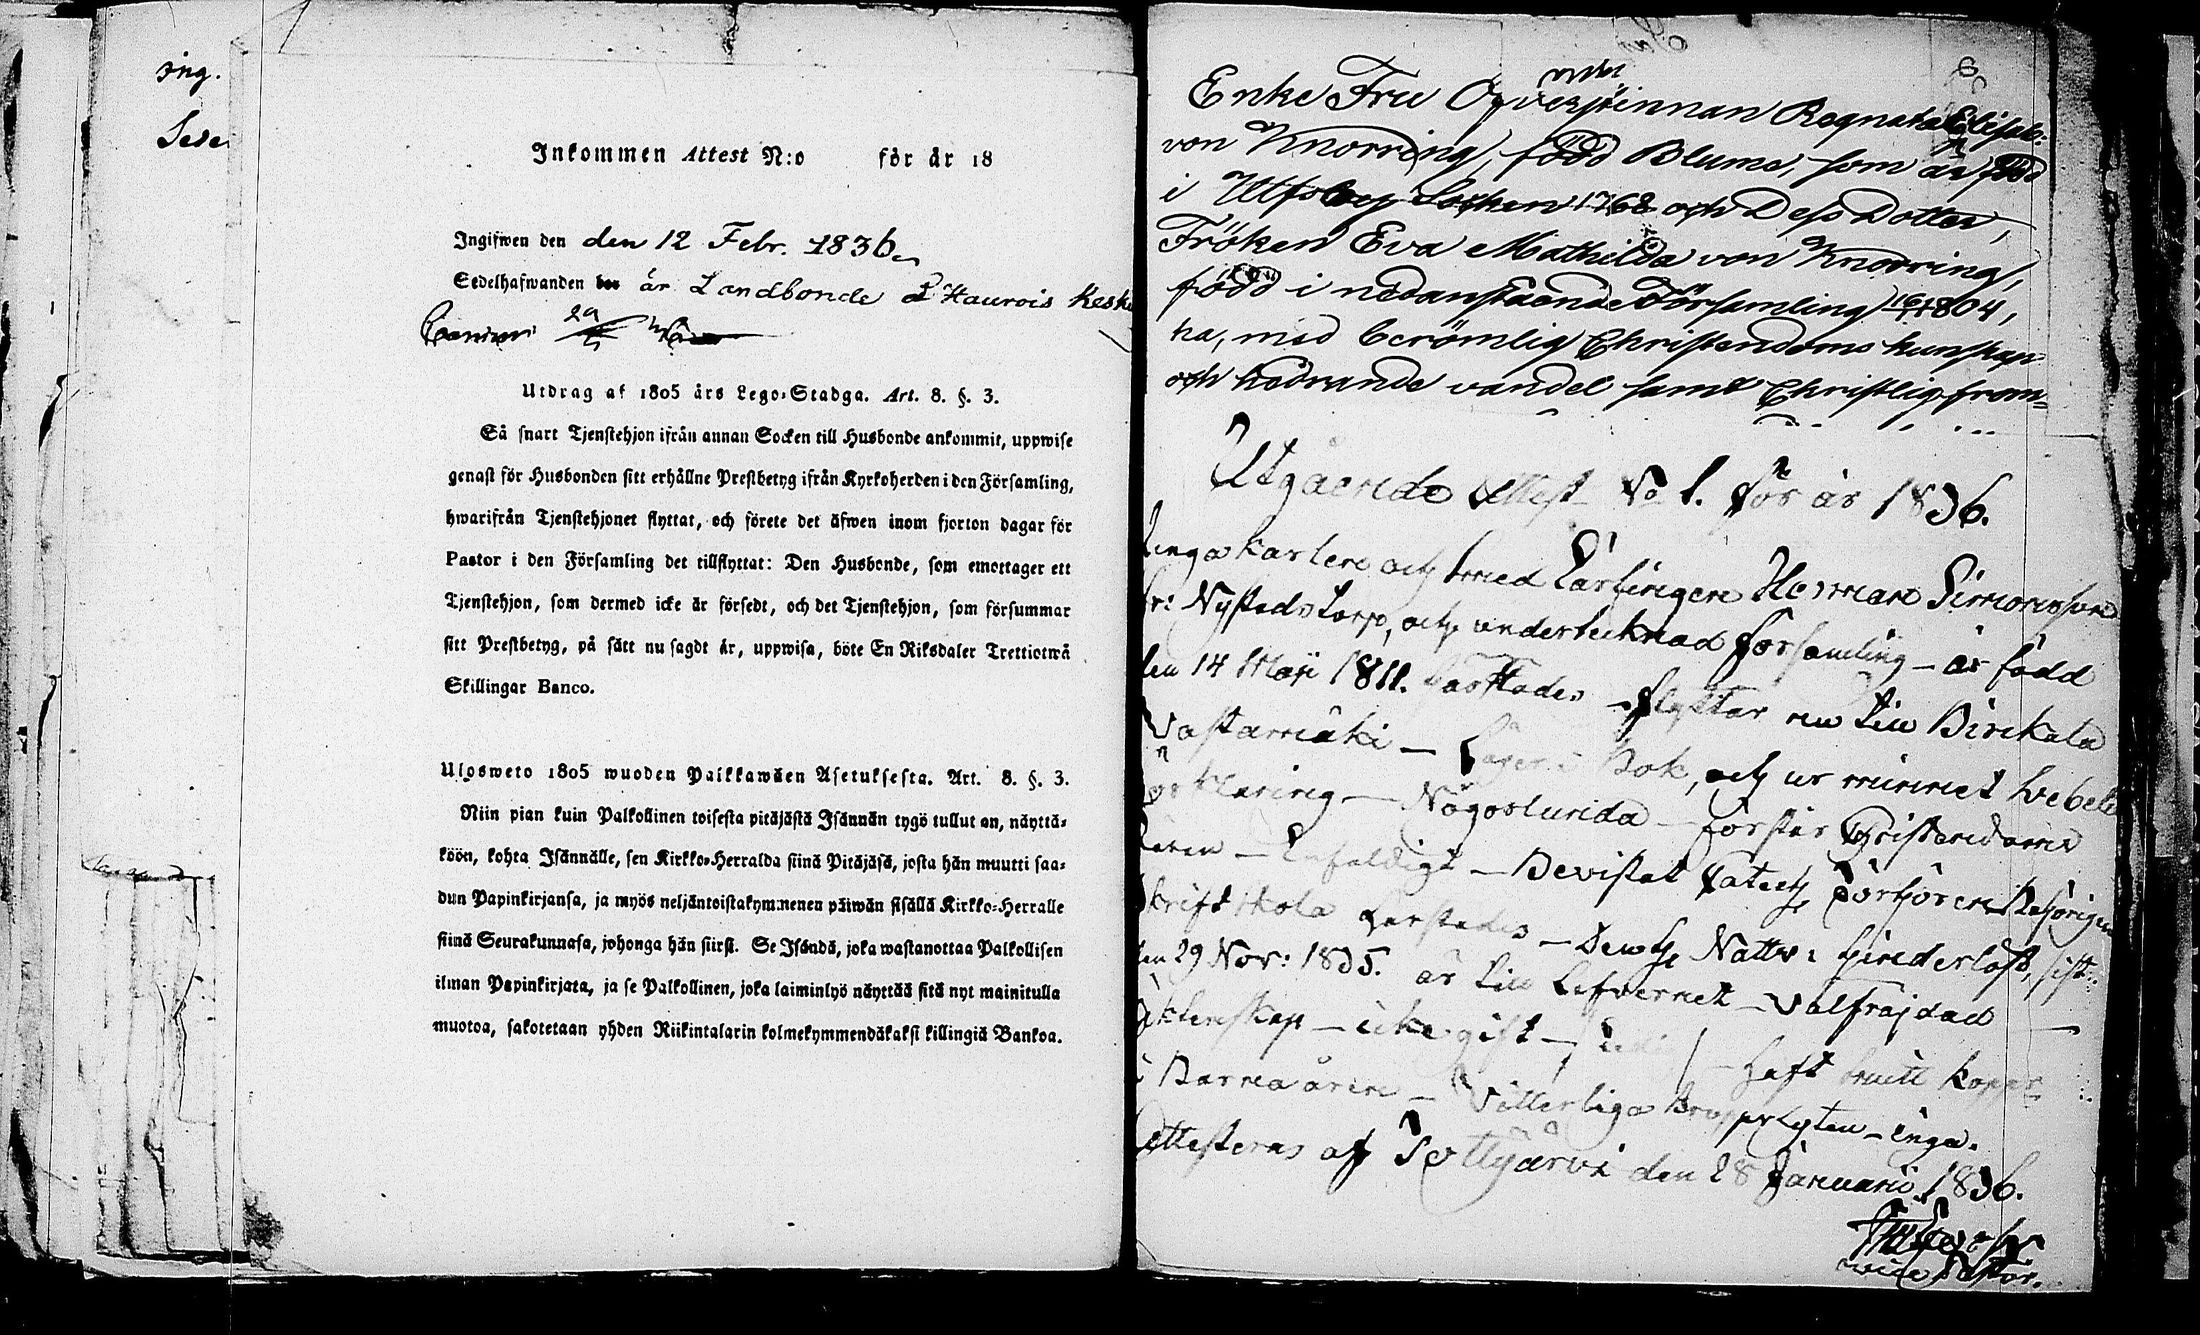 ing.
Sede
Inkommen Attest N:o för år 18
Ingifwen den den 12 Febr. 1836
Sedelhafwanden är Landbonde å Haurois Kesk
Utdrag af 1805 års Lego-Stadga. Art. 8. §. 3.
Så snart Tjenstehjon ifrån annan Socken till Husbonde ankommit, uppwise
genast för Husbonden sitt erhållne Prestbetyg ifrån Kyrkoherden i den Församling,
hwarifrån Tjenstehjonet flyttat, och förete det äfwen inom fjorton dagar för
Pastor i den Församling det tillflyttat: Den Husbonde, som emottager ett
Tjenstehjon, som dermed icke är försedt, och det Tjenstehjon, som försummar
sitt Prestbetyg, på sätt nu sagdt är, uppwisa, böte En Riksdaler Trettiotwå
Skillingar Banco.
Ulosweto 1805 wuoden Palkkawäen Asetuksesta. Art. 8. §. 3.
Niin pian kuin Palkollinen toisesta pitäjästä Isännän tygö tullut on, näyttä-
köön, kohta Isännälle, sen Kirkko-Herralda siinä Pitäjäsä, josta hän muutti saa-
dun Papinkirjansa, ja myös neljäntoistakymmenen päiwän sisällä Kirkko-Herralle
siinä Seurakunnasa, johonga hän siirsi. Se Isändä, joka wastanottaa Palkollisen
ilman Papinkirjata, ja se Palkollinen, joka laiminlyö näyttää sitä nyt mainitulla
muotoa, sakotetaan yhden Riikintalarin kolmekymmendäkaksi killingiä Bankoa.
Enke Fru Öfverstinnan Regnata Elisab:
von Knorring, född Blume, som är född
i Utfsby Socken 1768 och Dess Dotter,
Fröken Eva Mathilda von Knorring,
född i nedanstående Församling 1804,
ha, med berömlig Christendoms kunskap
och hedrande vandel samt Christlig from=
Utgående Attest No 1. för år 1836.
Herman Simonsson
Nystads torp, och undertecknad församling – är född
den 14 Maji 1811. flyttar nu till Birkala
Vastamäki – Läser i Bok, och ur minnet hela
förklaring – Någorlunda – förstår Christendoms
Enfaldigt – Bevistat Catech förhören
Skriftskola – Dess Nattv: hinderlöst, sist
den 29 Nov: 1835. är till Lefvernet – Välfräjdad
icke gift – haft kopper
i Barnaåren – Vitterliga lyten – inga.
Attesteras af Pottijärvi den 28 Januarii 1836.
vice Pastor.